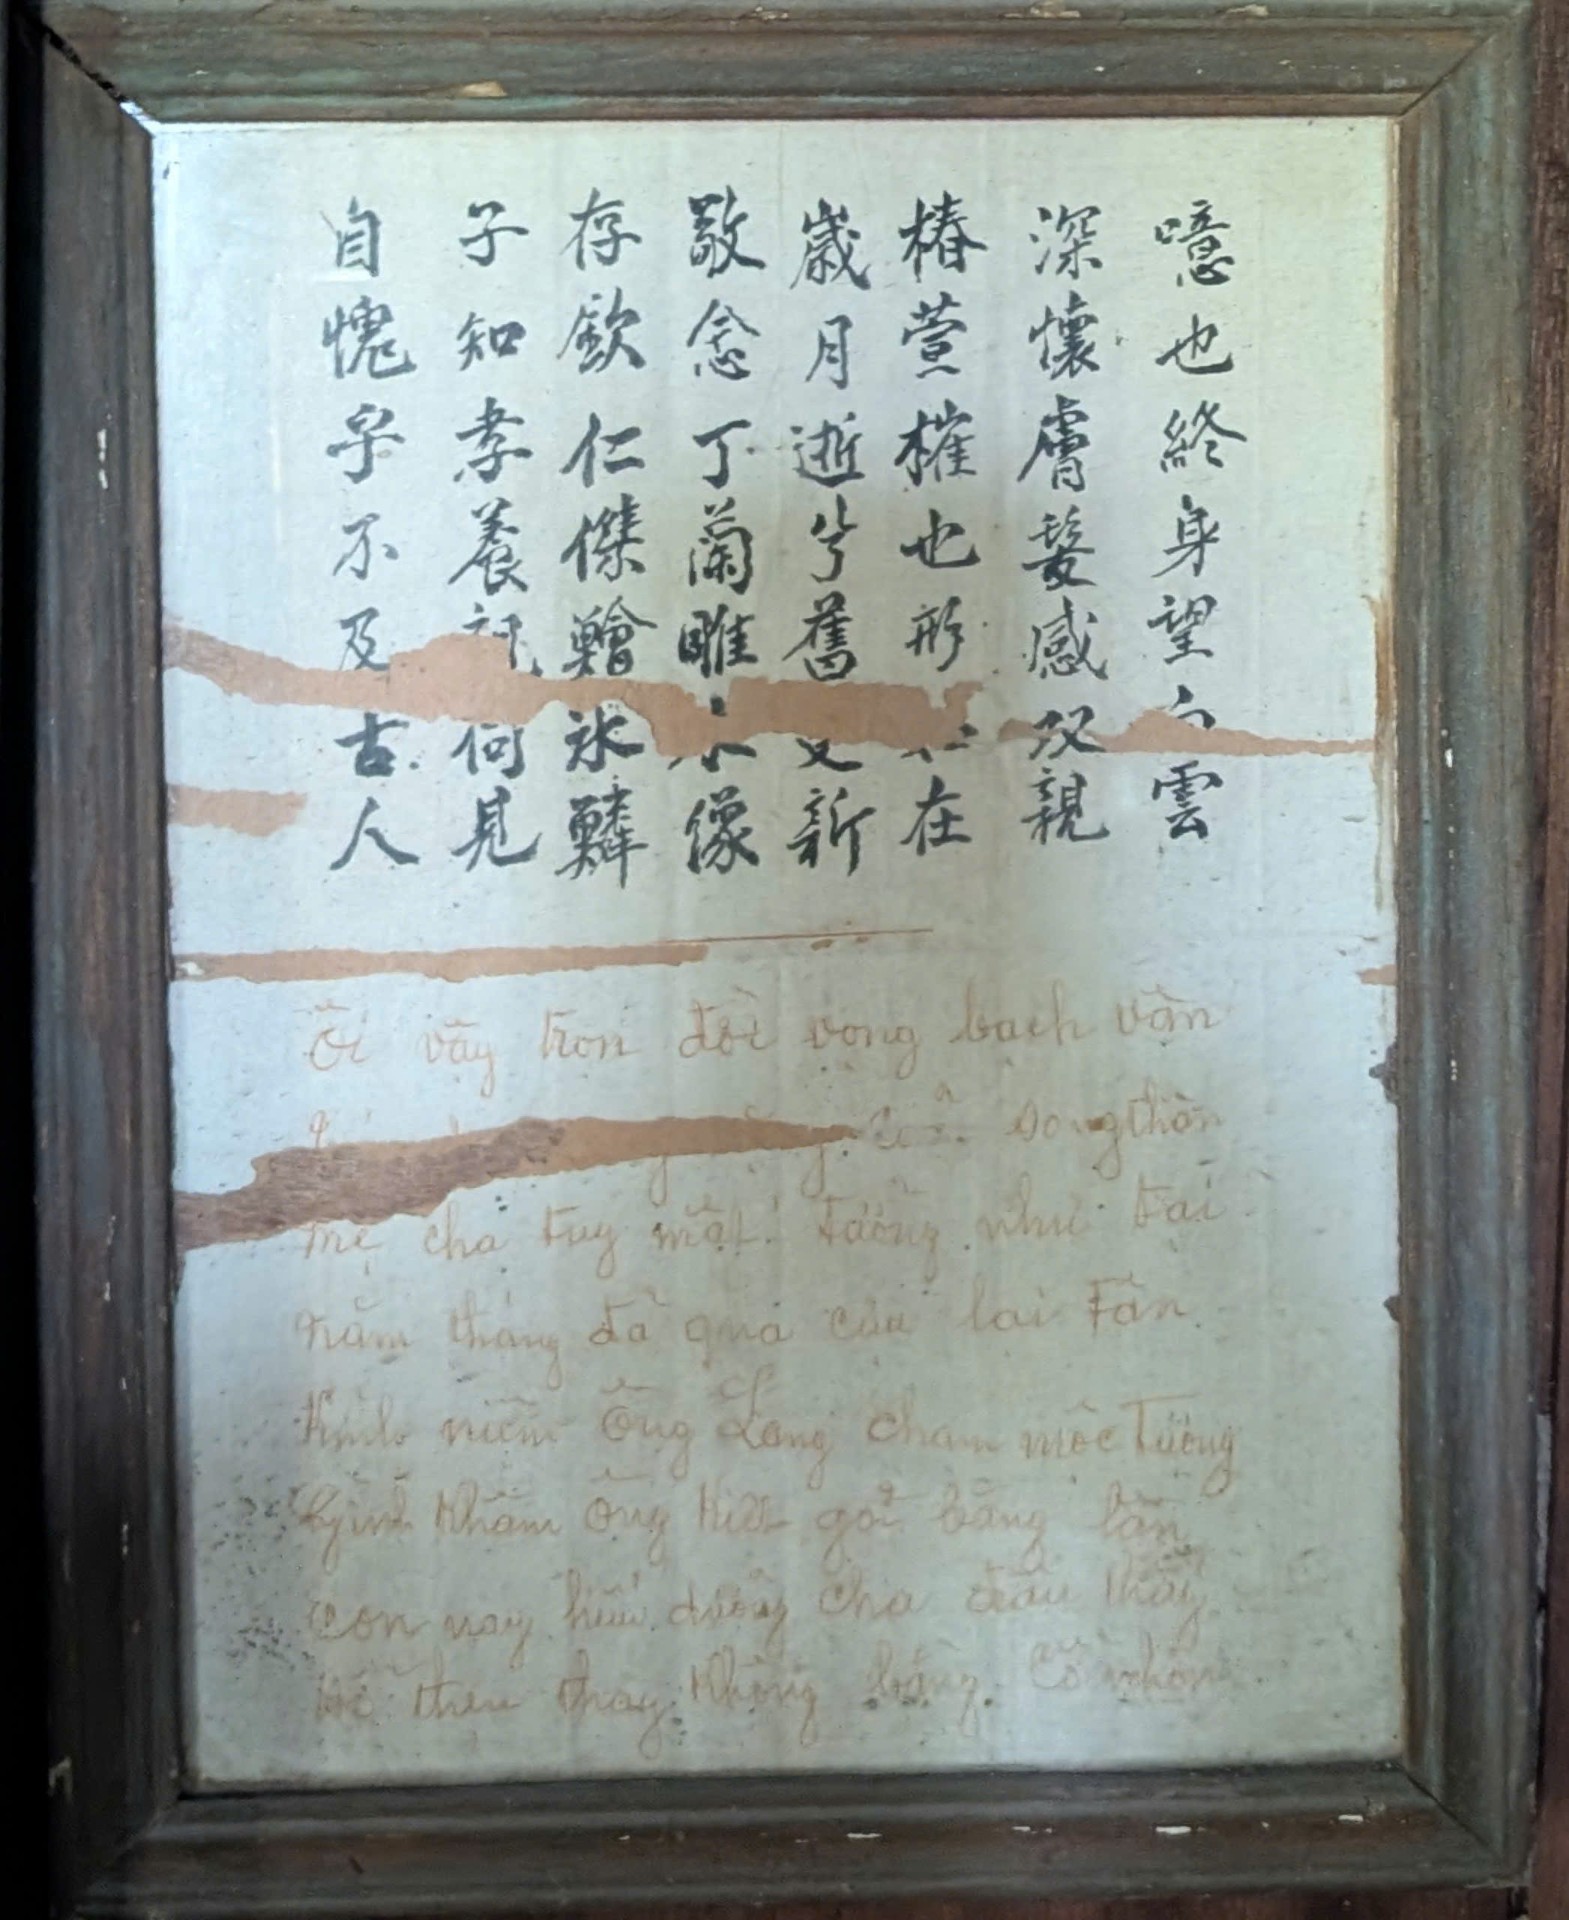 噫也終身望白雲
深懷膚髮感双親
椿萱摧也形 在
歲月逝兮舊 新
敬念丁蘭雕木像
存欽仁傑鱠氷鱗
子知孝養 何見
自愧乎不及古人
Ôi vậy trọn đời vọng bạch vân
song thân
Mẹ cha tuy mất tưởng như tại
Năm tháng đã qua cửu lại tân
Kính niệm ông Lang chạm mộc tượng
Khâm ông Kiệt gỏi băng lân
Con nay hiếu dưỡng cha đâu thấy
thẹn thay không bằng cổ nhân